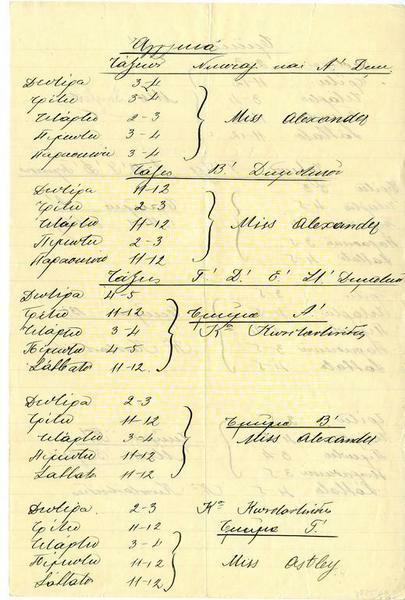 Αγγλικά
Τάξεις Νηπιαγ. και Α' Δημ.
Δευτέρα 3-4
Τρίτη 3-4
Τετάρτη 2-3
Πέμπτη 3-4
Παρασκευή 3-4
Miss Alexander
Τάξις Β' Δημοτικού
Δευτέρα 11-12
Τρίτη 2-3
Τετάρτη 11-12
Πέμπτη 2-3
Παρασκευή 11-12
Miss Alexander
Τάξεις Γ' Δ' Ε' Στ' Δημοτικού
Δευτέρα 4-5
Τρίτη 11-12 Τμήμα Α'
Τετάρτη 3-4 Κα Κωνσταντινίδη
Πέμπτη 4-5
Σάββατο 11-12
Δευτέρα 2-3
Τρίτη 11-12 Τμήμα Β'
Τετάρτη 3-4 Miss Alexander
Πέμπτη 11-12
Σάββατο 11-12
Δευτέρα 2-3 Κα Κωνσταντινίδη
Τρίτη 11-12 Τμήμα Γ'
Τετάρτη 3-4
Πέμπτη 11-12 Miss Astley
Σάββατο 11-12